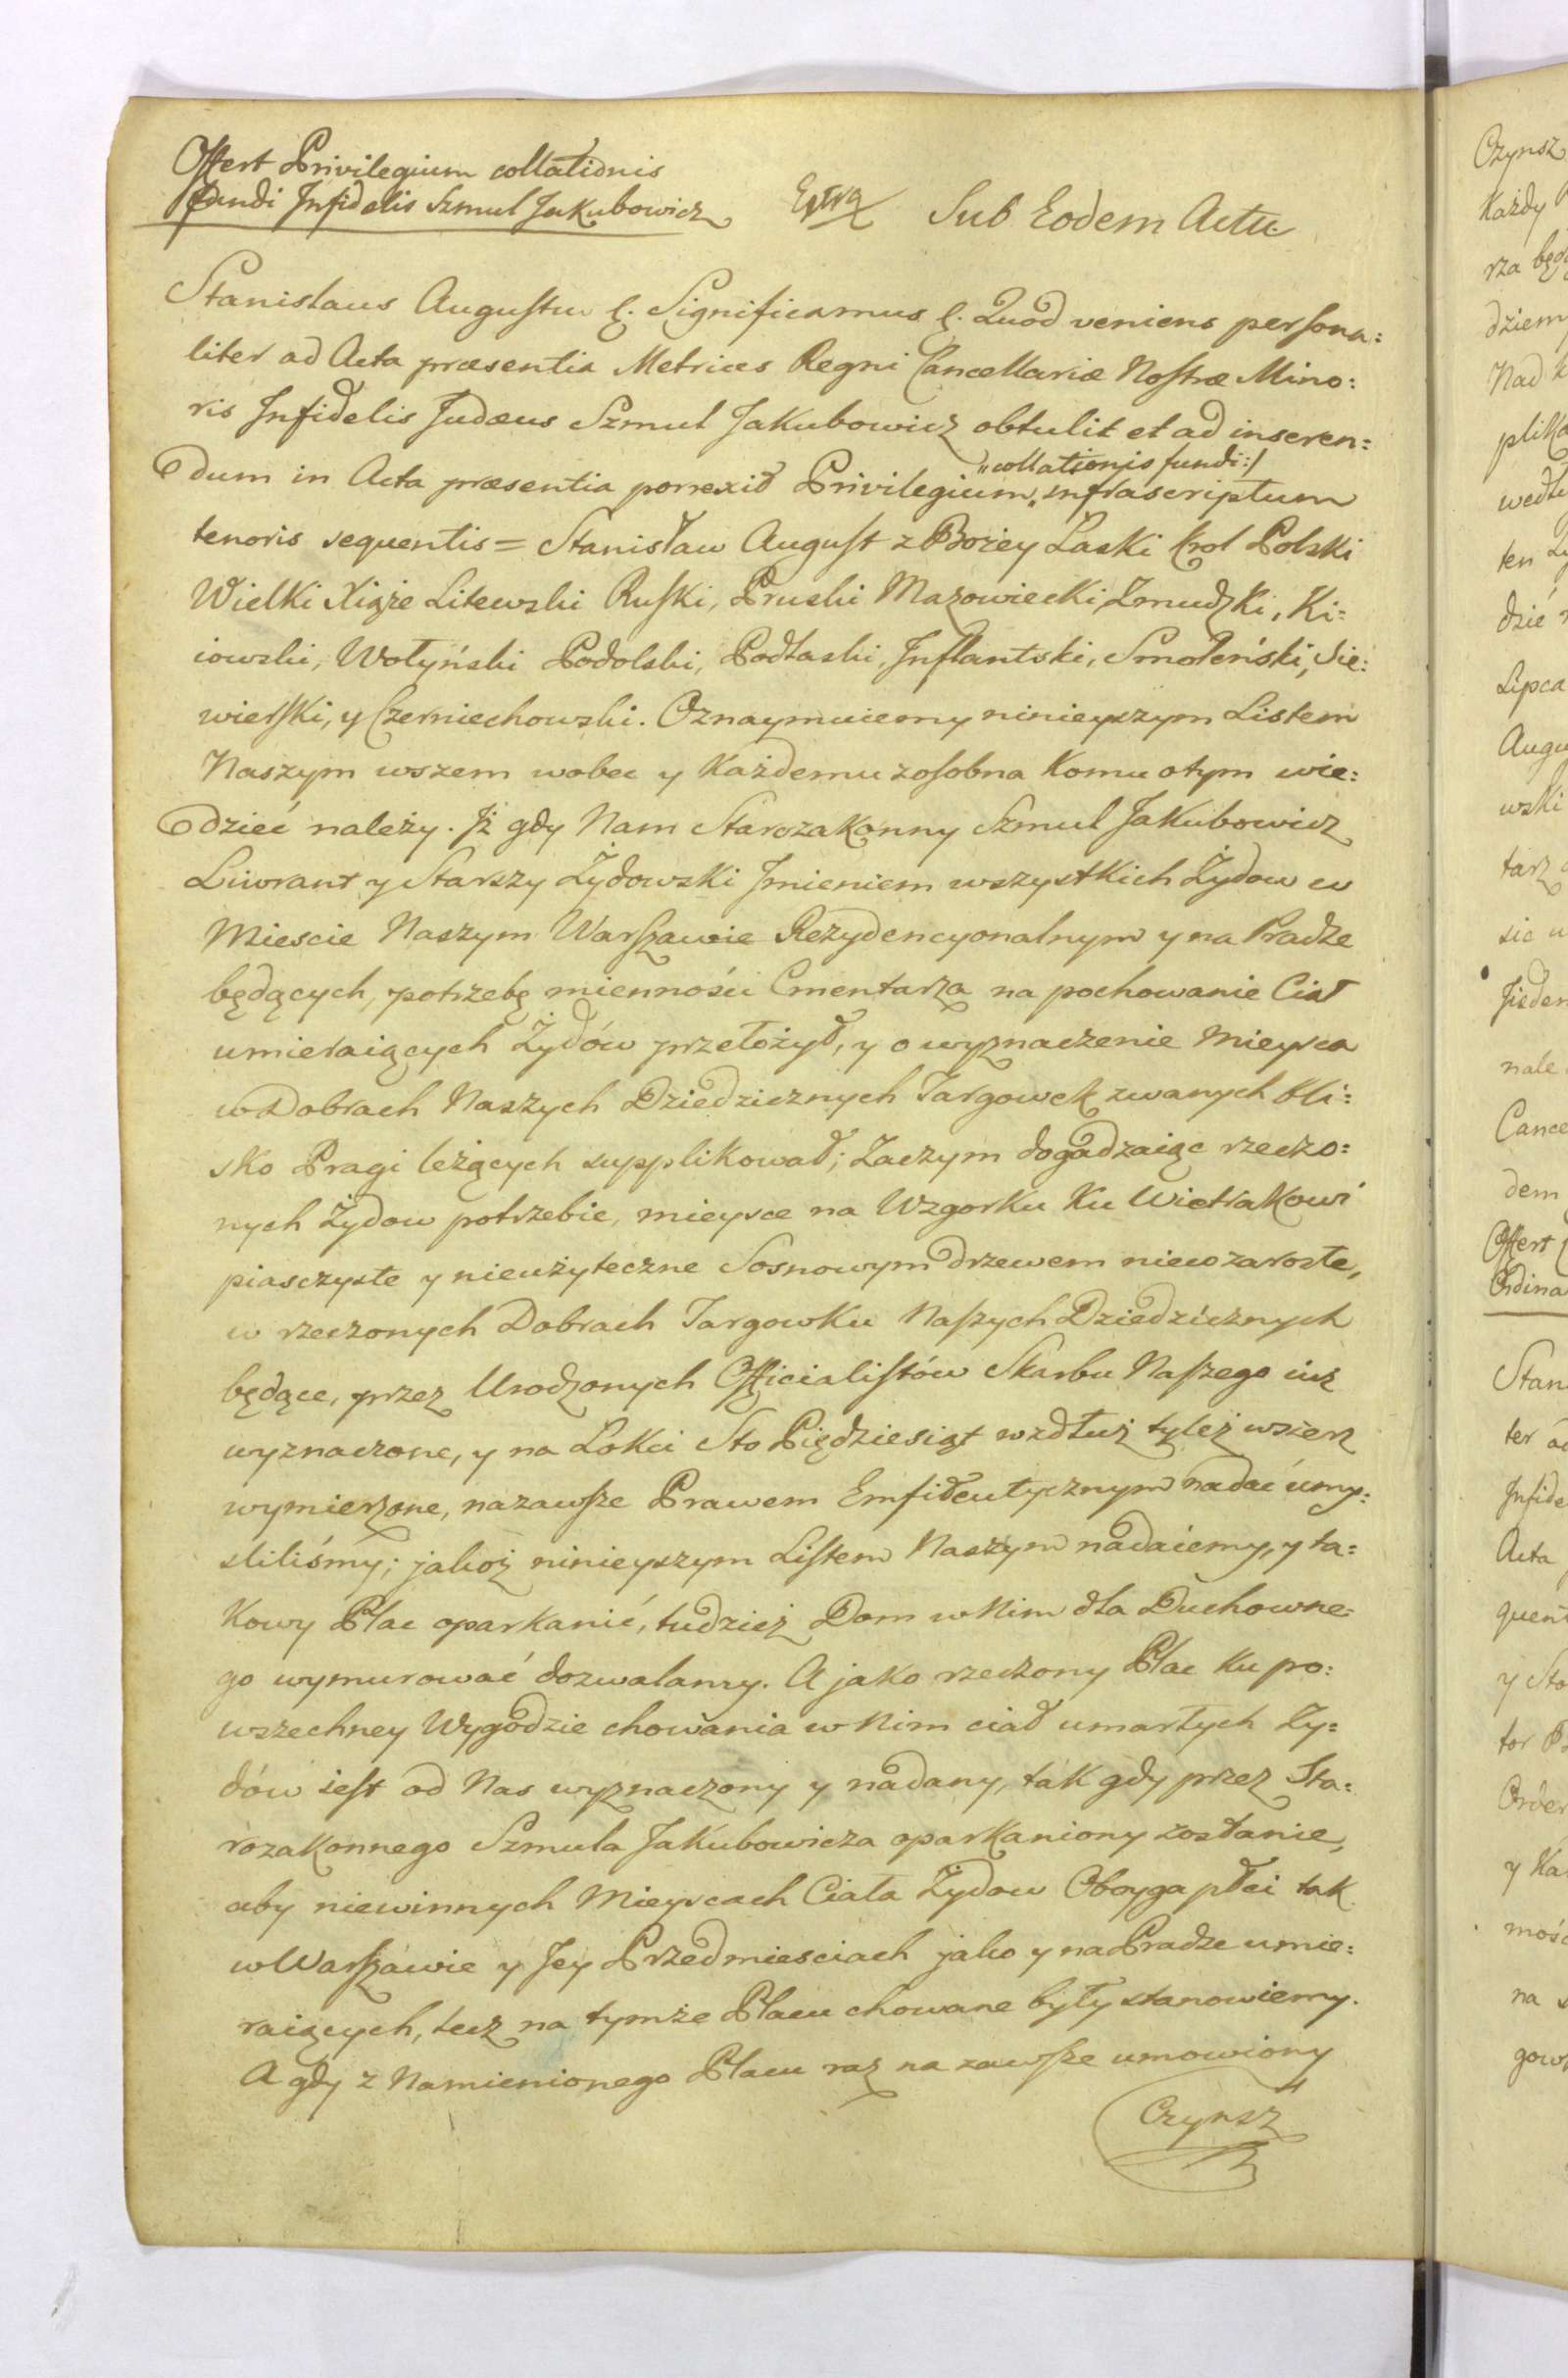 Offert Privilegium collationis
fundi Infidelis Szmul Jakubowicz
Extra Sub Eodem Actu
Stanislaus Augustus &. Significamus &. Quod veniens persona=
liter ad Acta præsentia Metrices Regni Cancellariæ Nostræ Mino:
ris Infidelis Judæus Szmul Jakubowicz obtulit et ad inseren=
"collationis fundi:/
dum in Acta præsentia porrexit Privilegium " infrascriptum
tenoris sequentis = Stanisław August z Bożey Łaski Krol Polski
Wielki Xiąże Litewski Ruski, Pruski Mazowiecki Zmudzki, Ki=
iowski, Wołyński Podolski, Podlaski, Inflantski, Smoleński, Sie:
wierski, y Czerniechowski. Oznaymuiemy ninieyszym Listem
Naszym wszem wobec y Każdemu zosobna Komu otym wie:
dzieć należy. Iż gdy Nam Starozakonny Szmul Jakubowicz
Liwrant y Starszy Żydowski Imieniem wszystkich Żydow w
Miescie Naszym Warszawie Rezydencyonalnym y na Pradze
będących, potrzebę mienności Cmentarza na pochowanie Ciał
umieraiących Żydów przełożył, y o wyznaczenie Mieysca
w Dobrach Naszych Dziedzicznych Targowek zwanych bli=
sko Pragi leżących supplikował; Zaczym dogadzaiąc rzeczo=
nych Żydow potrzebie, mieysce na Wzgorku Ku Wietrakowi
piasczyste y nieużyteczne Sosnowym drzewem nieco zarosłe,
w rzeczonych Dobrach Targowku Naszych Dziedzicznych
będące, przez Urodzonych Officialistów Skarbu Naszego iuż
wyznaczone, y na Łokci Sto Pięćdziesiąt wzdłuż tyleż wszerz
wymierzone, nazawsze Prawem Emfiteutycznym nadać umy=
sliliśmy; jakoż ninieyszym Listem Naszym nadaiemy, y ta=
Kowy Plac oparkanić, tudzież Dom w Nim dla Duchowne=
go wymurować dozwalamy. A jako rzeczony Plac Ku po=
wszechney Wygodzie chowania w Nim ciał umarłych Ży=
dów iest od Nas wyznaczony y nadany, tak gdy przez Sta=
rozakonnego Szmula Jakubowicza oparkaniony zostanie,
aby niewinnych Mieyscach Ciała Żydow Oboyga płci tak
w Warszawie y Jey Przedmiesciach jako y na Pradze umie=
raiących, lecz na tymże Placu chowane były stanowiemy.
A gdy z Namienionego Placu raz na zawsze umowiony
Czynsz
Czynsz
Każdy
rza
dziem
Nad
wedłu
ten
dzić
Lipca
Augu
wski
tarz
sic
nale
Cance
dem
Offert
Ordina
Stan
ter
Infide
Acta
quent
y Sto
tor
Order
y Ka
mość
na
gow